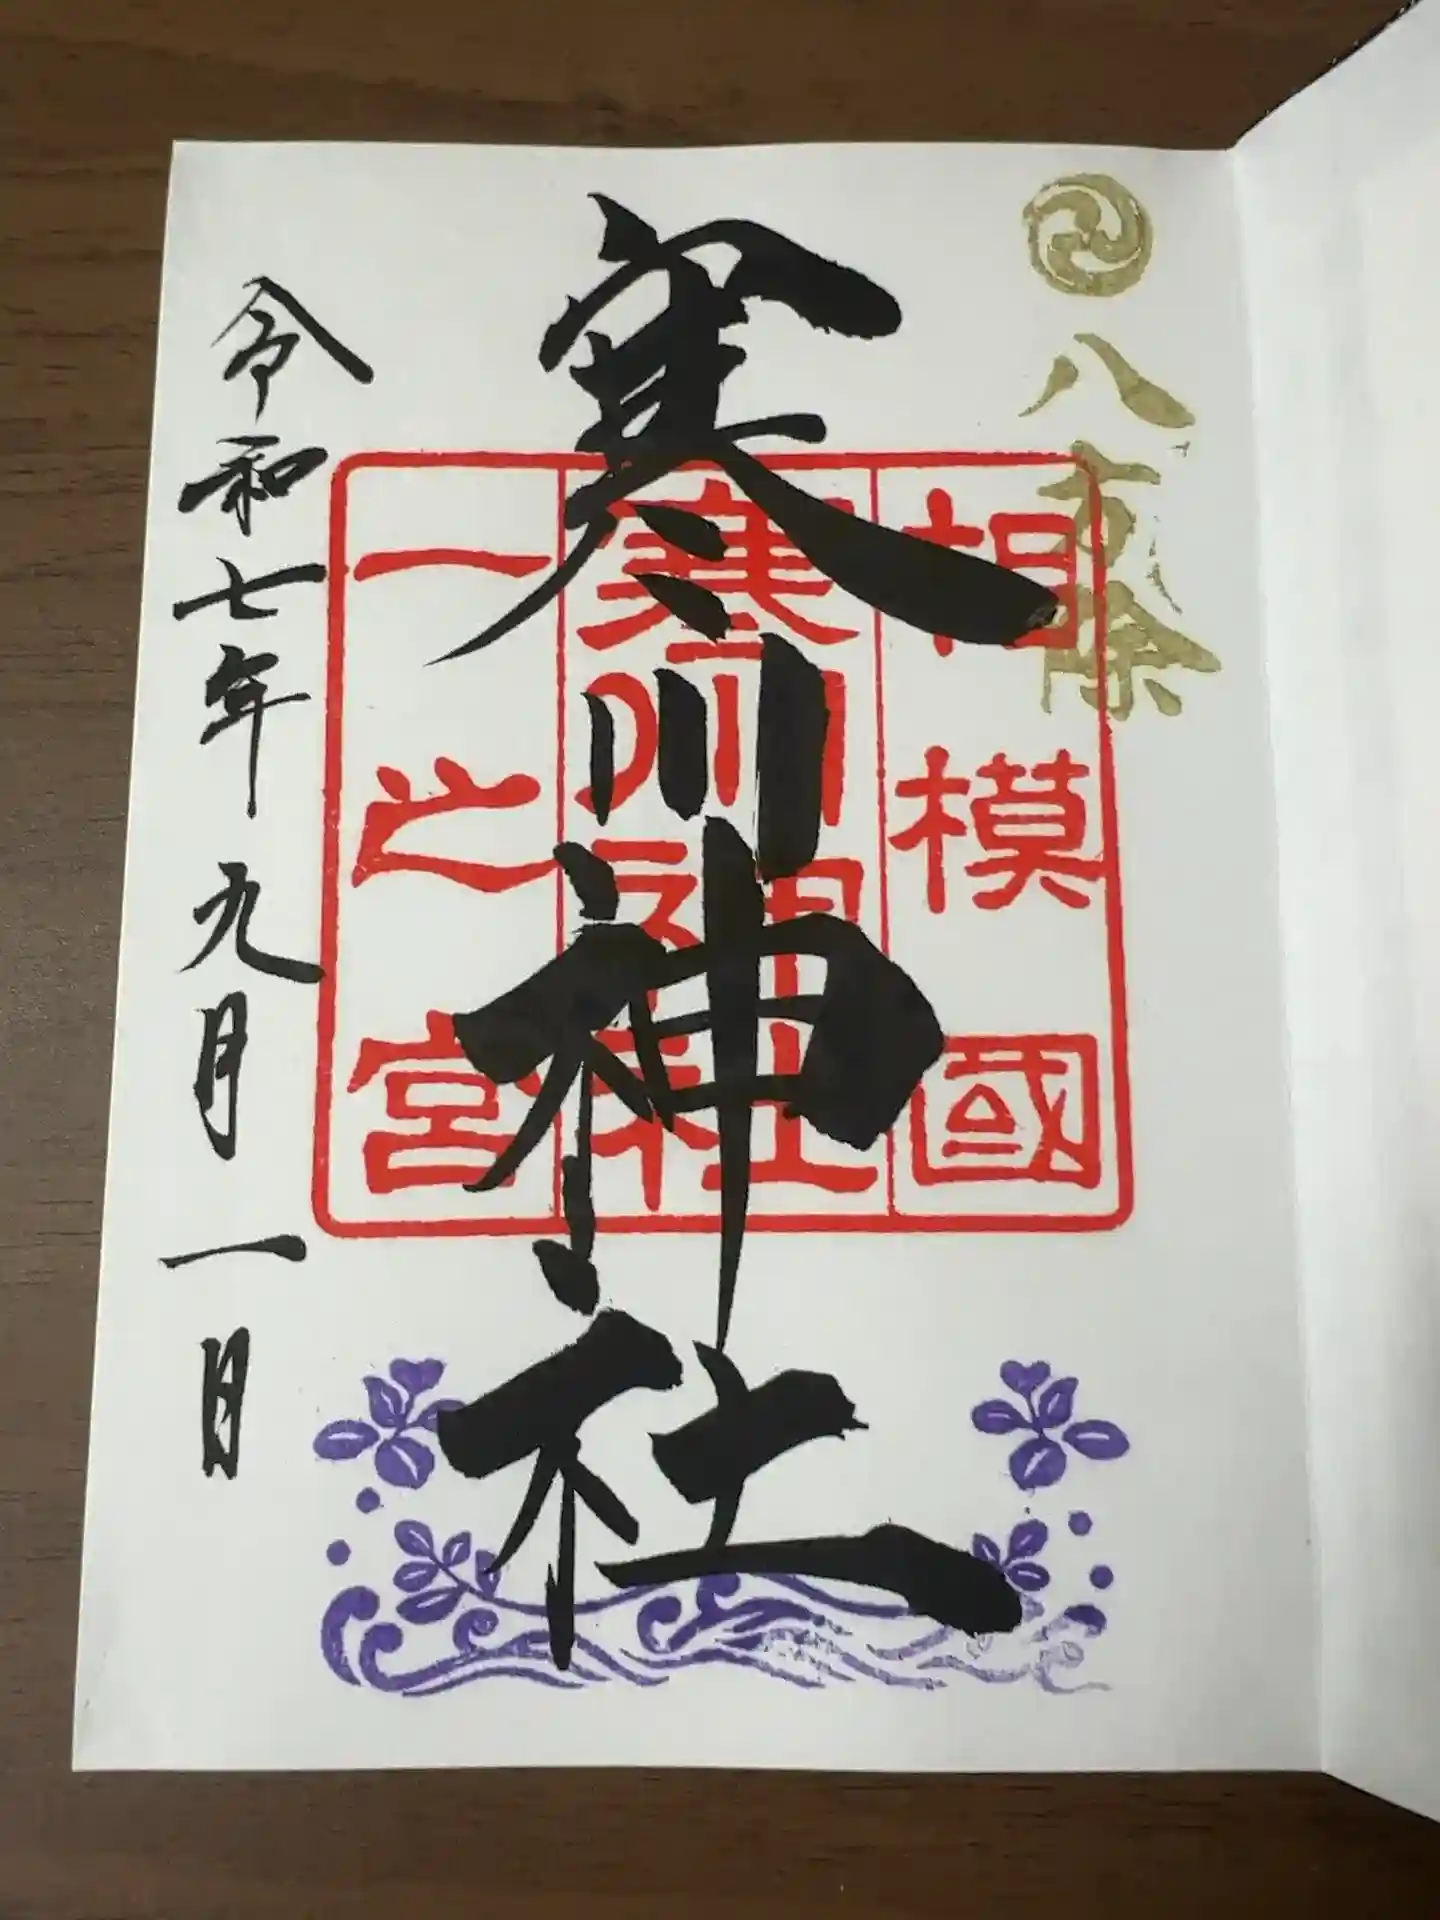 八方除
相模國
寒川神社
一之宮
寒川神社
令和七年九月一日